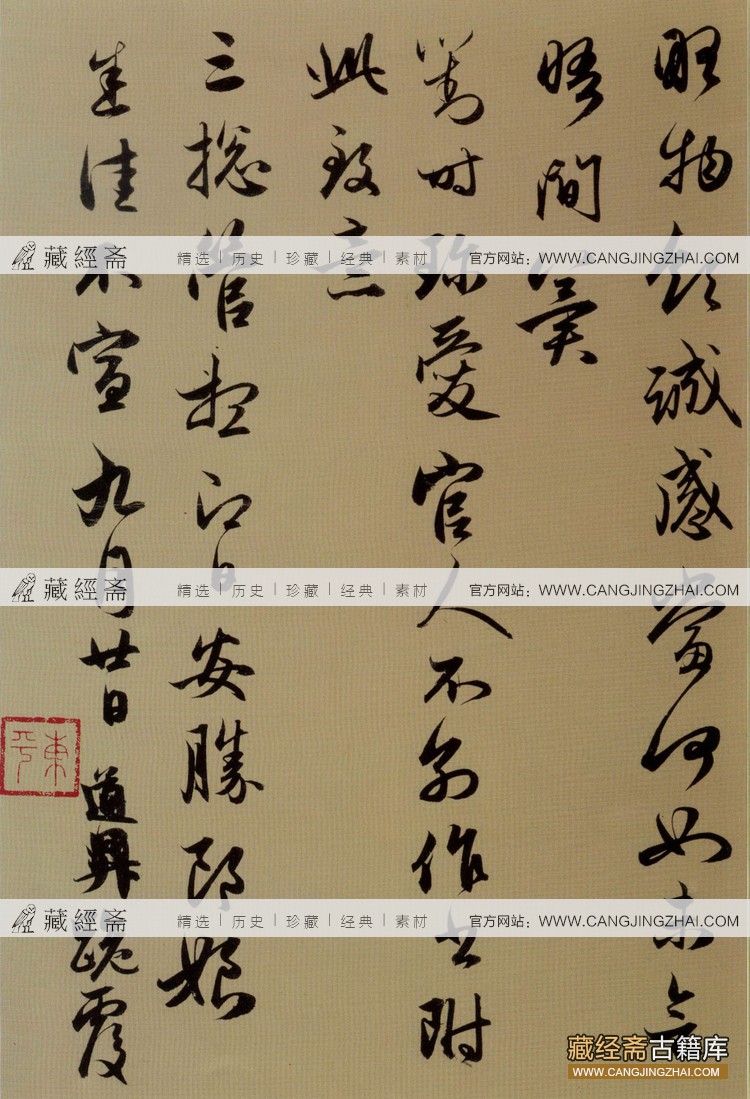 物領誠感當何如未會
晤間冀
對時珍愛官人不別作書附
此致意
三總管想即日安勝郎娘
悉佳不宣九月廿日道昇跪覆
東平
藏經斋 精选 | 历史 | 珍藏 | 经典 | 素材 官方网站：WWW.CANGJINGZHAI.COM
藏經斋 精选 | 历史 | 珍藏 | 经典 | 素材 官方网站：WWW.CANGJINGZHAI.COM
藏經斋 精选 | 历史 | 珍藏 | 经典 | 素材 官方网站：WWW.CANGJINGZHAI.COM
藏经斋古籍库
WWW.CANGJINGZHAI.COM